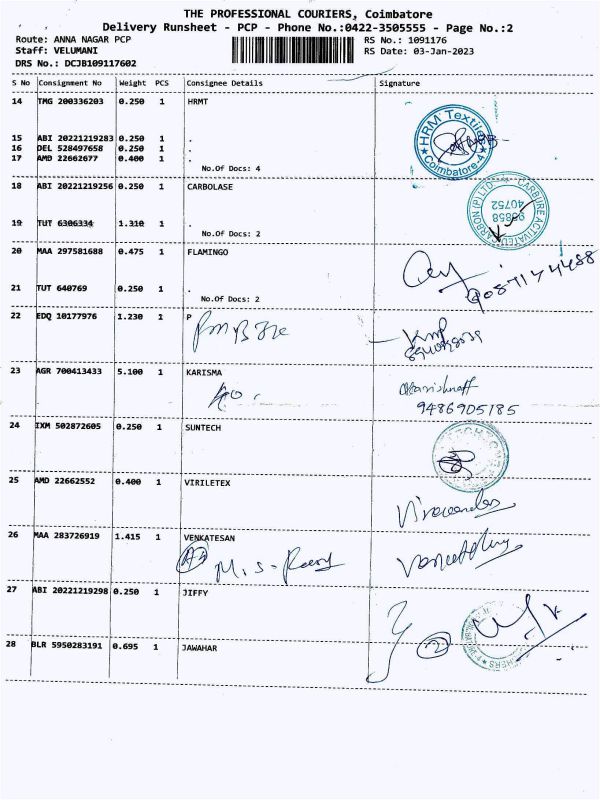 THE PROFESSIONAL COURIERS, Coimbatore
Delivery Runsheet - PCP - Phone No.:0422-3505555 - Page No.:2
Route: ANNA NAGAR PCP RS No.: 1091176
Staff: VELUMANI RS Date: 03-Jan-2023
DRS No.: DCJB109117602
S No Consignment No Weight PCS Consignee Details Signature
14 TMG 200336203 0.250 1 HRMT
HRM Textile
Coimbatore-4
15 ABI 20221219283 0.250 1 .
16 DEL 528497658 0.250 1 .
17 AMD 22662677 0.400 1 .
No.Of Docs: 4
18 ABI 20221219256 0.250 1 CARBOLASE
CARBURE ACTIVATED CARBON (P) LTD
98858
40752
19 TUT 6306334 1.310 1 .
No.Of Docs: 2
20 MAA 297581688 0.475 1 FLAMINGO
21 TUT 640769 0.250 1 .
No.Of Docs: 2
22 EDQ 10177976 1.230 1 P
23 AGR 700413433 5.100 1 KARISMA
9486905185
24 IXM 502872605 0.250 1 SUNTECH
25 AMD 22662552 0.400 1 VIRILETEX
26 MAA 283726919 1.415 1 VENKATESAN
M.S-
27 ABI 20221219298 0.250 1 JIFFY
2
28 BLR 5950283191 0.695 1 JAWAHAR